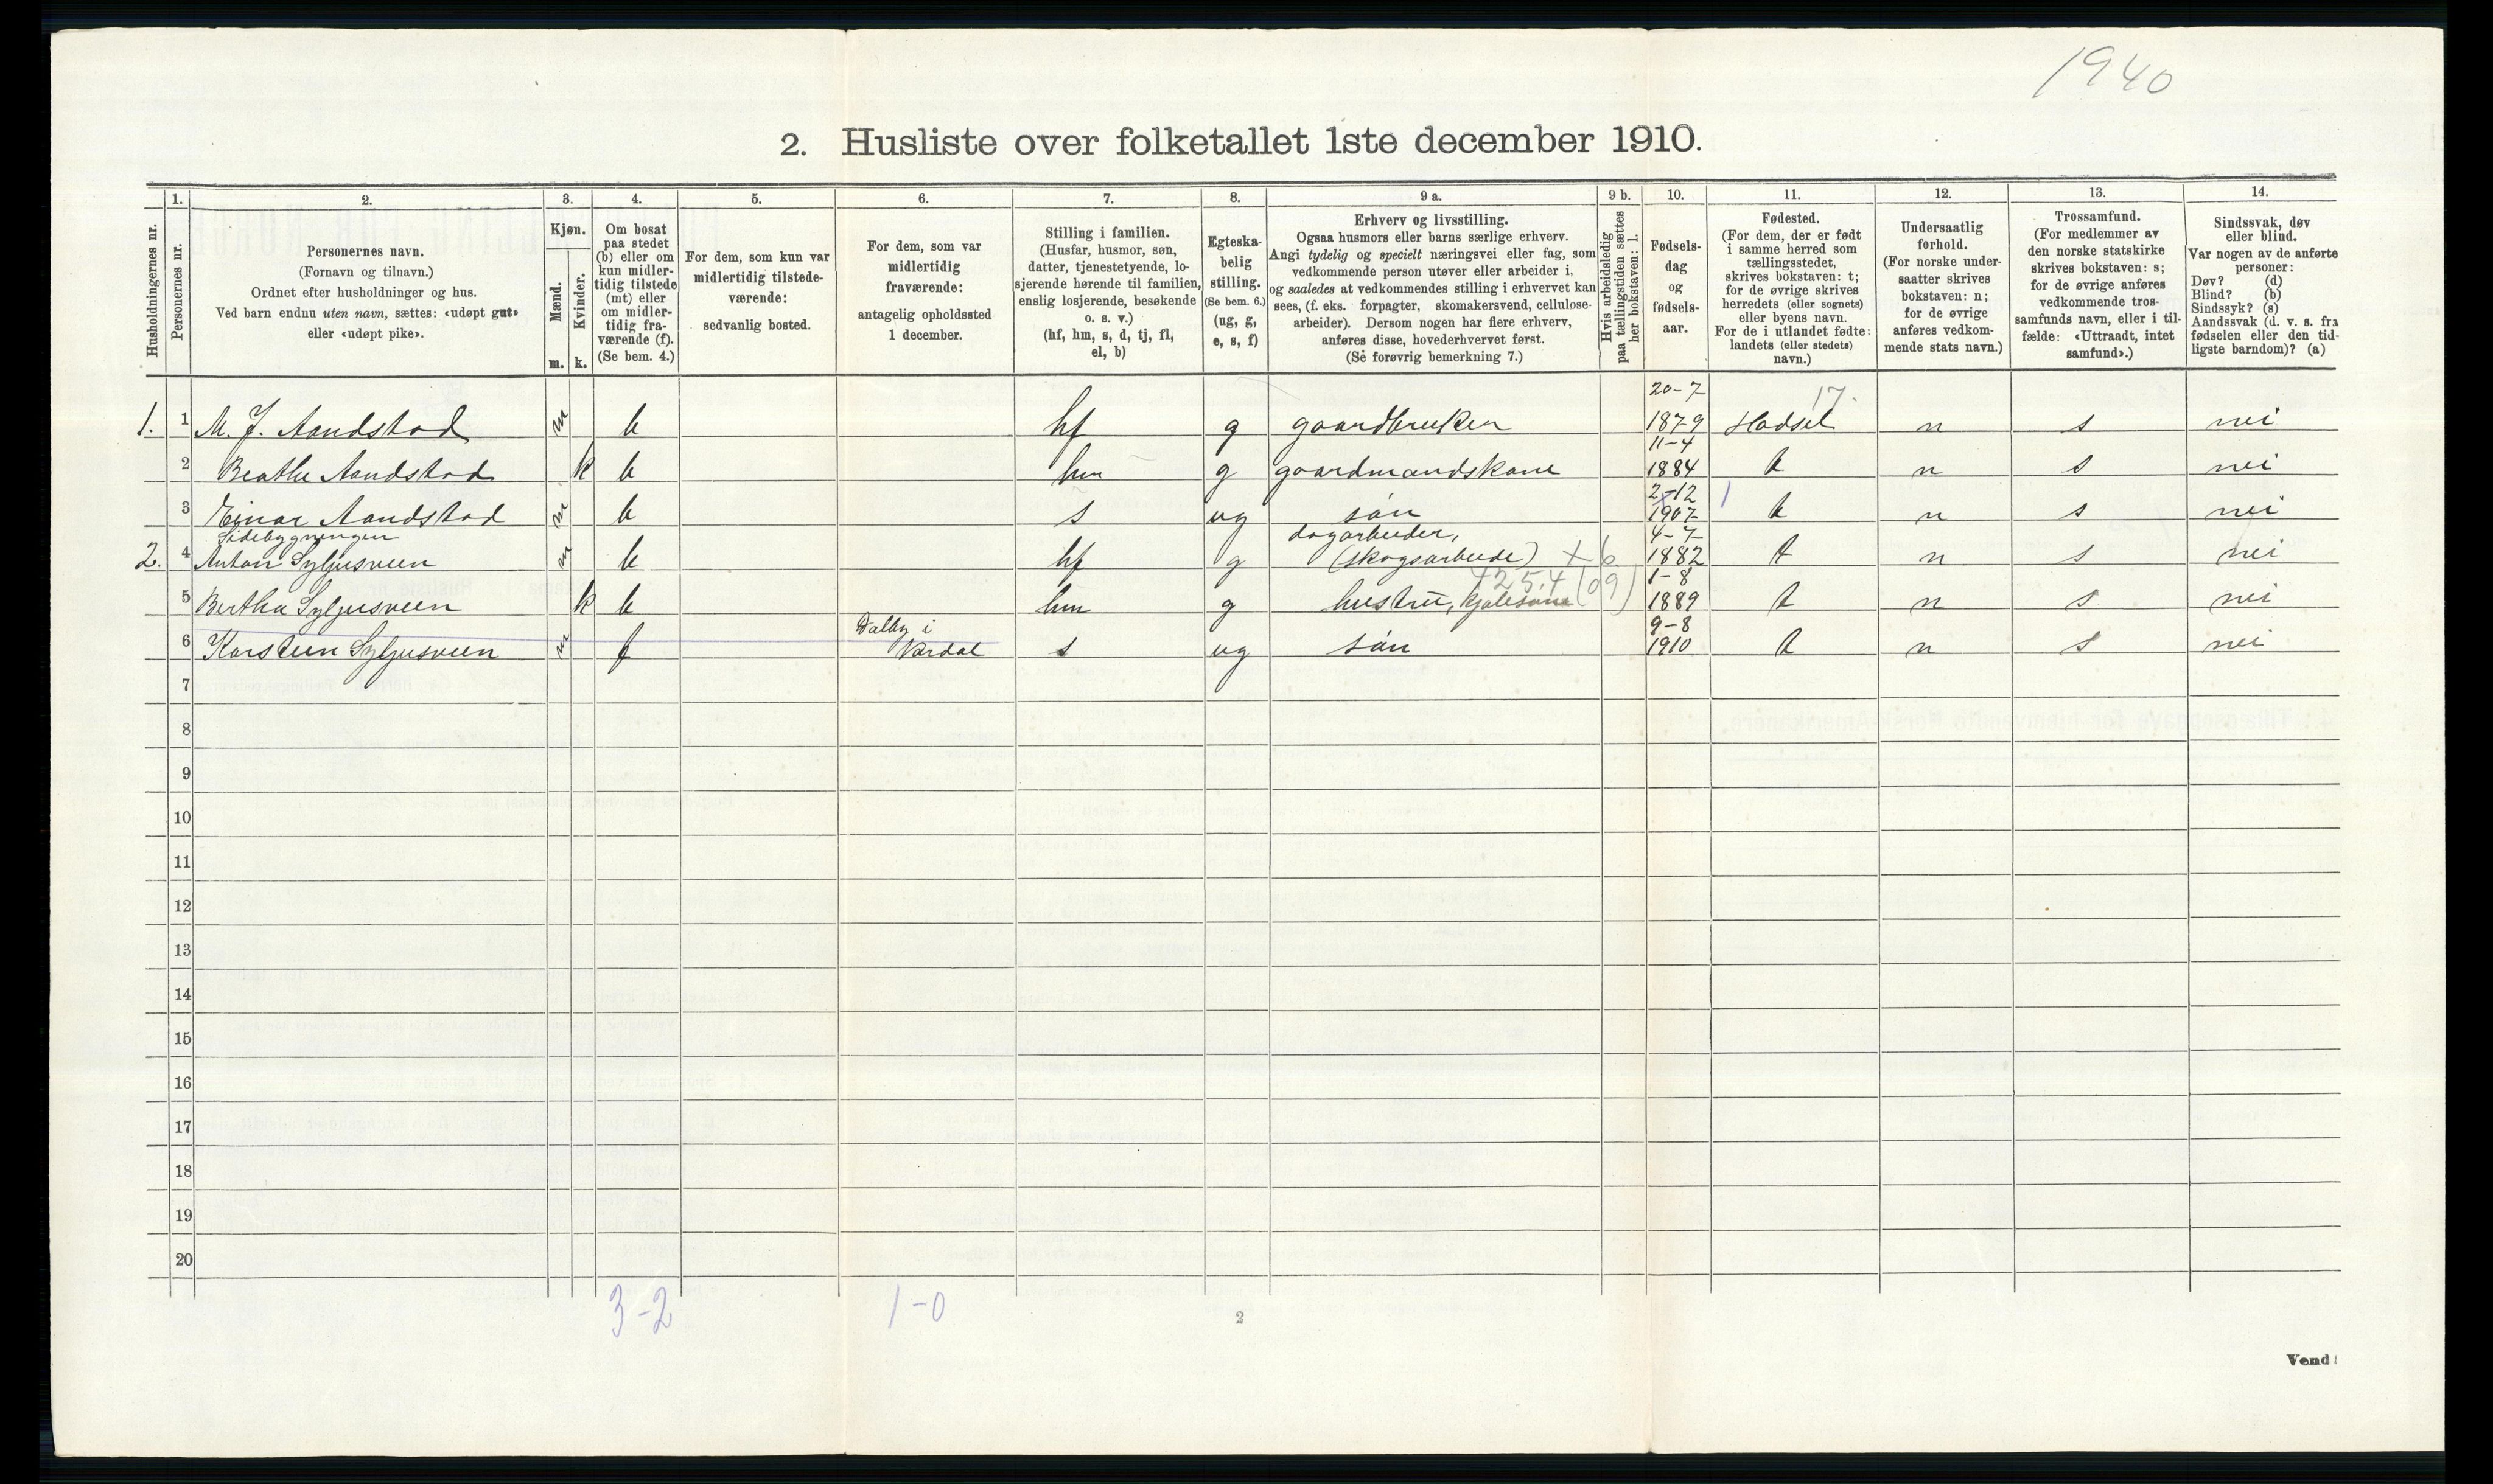 1940
2. Husliste over folketallet 1ste december 1910.
1. 2. 3. 4. 5. 6. 7. 8. 9 a. 9 b. 10. 11. 12. 13. 14.
Husholdningernes nr.
Personernes nr.
Personernes navn.
(Fornavn og tilnavn.)
Ordnet efter husholdninger og hus.
Ved barn endnu uten navn, sættes: «udøpt gut»
eller «udøpt pike».
Kjøn.
Mænd.
Kvinder.
m. k.
Om bosat
paa stedet
(b) eller om
kun midler-
tidig tilstede
(mt) eller
om midler-
tidig fra-
værende (f).
(Se bem. 4.)
For dem, som kun var
midlertidig tilstede-
værende:
sedvanlig bosted.
For dem, som var
midlertidig
fraværende:
antagelig opholdssted
1 december.
Stilling i familien.
(Husfar, husmor, søn,
datter, tjenestetyende, lo-
sjerende hørende til familien,
enslig losjerende, besøkende
o. s. v.)
(hf, hm, s, d, tj, fl,
el, b)
Egteska-
belig
stilling.
(Se bem. 6.)
(ug, g,
e, s, f)
Erhverv og livsstilling.
Ogsaa husmors eller barns særlige erhverv.
Angi tydelig og specielt næringsvei eller fag, som
vedkommende person utøver eller arbeider i,
og saaledes at vedkommendes stilling i erhvervet kan
sees, (f. eks. forpagter, skomakersvend, cellulose-
arbeider). Dersom nogen har flere erhverv,
anføres disse, hovederhvervet først.
(Se forøvrig bemerkning 7.)
Hvis arbeidsledig
paa tællingstiden sættes
her bokstaven: l.
Fødsels-
dag
og
fødsels-
aar.
Fødested.
(For dem, der er født
i samme herred som
tællingsstedet,
skrives bokstaven: t;
for de øvrige skrives
herredets (eller sognets)
eller byens navn.
For de i utlandet fødte:
landets (eller stedets)
navn.)
Undersaatlig
forhold.
(For norske under-
saatter skrives
bokstaven: n;
for de øvrige
anføres vedkom-
mende stats navn.)
Trossamfund.
(For medlemmer av
den norske statskirke
skrives bokstaven: s;
for de øvrige anføres
vedkommende tros-
samfunds navn, eller i til-
fælde: «Uttraadt, intet
samfund».)
Sindssvak, døv
eller blind.
Var nogen av de anførte
personer:
Døv? (d)
Blind? (b)
Sindssyk? (s)
Aandssvak (d. v. s. fra
fødselen eller den tid-
ligste barndom)? (a)
20-7 17.
1. 1 M. J. Aandstad m b hf g gaardbruker 1879 Hadsel n s nei
11-4
2 Beathe Aandstad k b hm g gaardmandskone 1884 t n s nei
2-12 1
3 Einar Aandstad m b s ug søn 1907 t n s nei
Sidebygningen dagarbeider, 4-7
2. 4 Anton Syljusveen m b hf g (skogsarbeide) + 6 1882 t n s nei
425.4 (09) 1-8
5 Bertha Syljusveen k b hm g hustru, 1889 t n s nei
Dalby i 9-8
6 Karsteen Syljusveen m f Vardal s ug søn 1910 t n s nei
7
8
9
10
11
12
13
14
15
16
17
18
19
20
3-2 1-0
2
Vend!